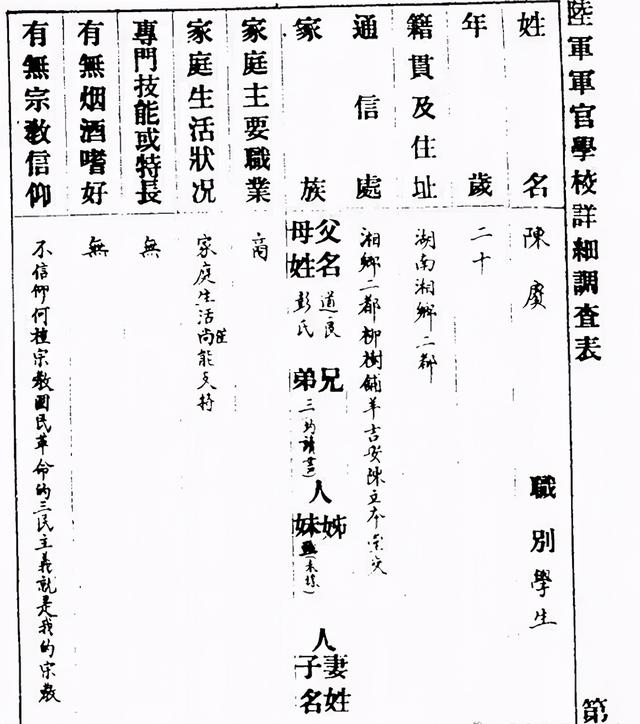 陸軍軍官學校詳細調查表
第
姓名 陳賡 職別 學生
年歲 二十
籍貫及住址 湖南湘鄉二都
通信處 湘鄉二都柳樹鋪羊吉安陳立本堂交
家族 父名 道良 兄 人 姊 人 妻姓
母姓 彭氏 弟 三 妹 子名
家庭主要職業 商
家庭生活狀况 家庭生活尚能支持
專門技能或特長 無
有無烟酒嗜好 無
有無宗教信仰 不信仰何種宗教國民革命的三民主義就是我的宗教